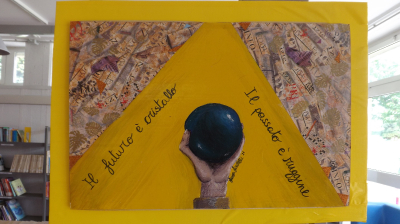 Il futuro è cristallo
Il passato è ruggine